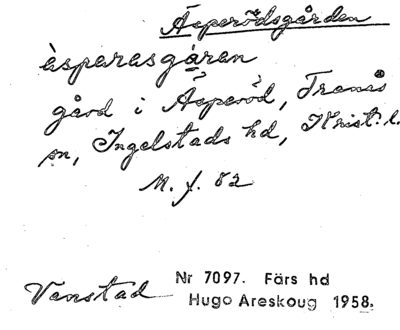 Äsperödsgården
àsparasgáren
gård i Äsperöd, Tranås
sn, Ingelstads hd, Krist. l.
M. f. 82
Vanstad
Nr 7097. Färs hd
Hugo Areskoug 1958.